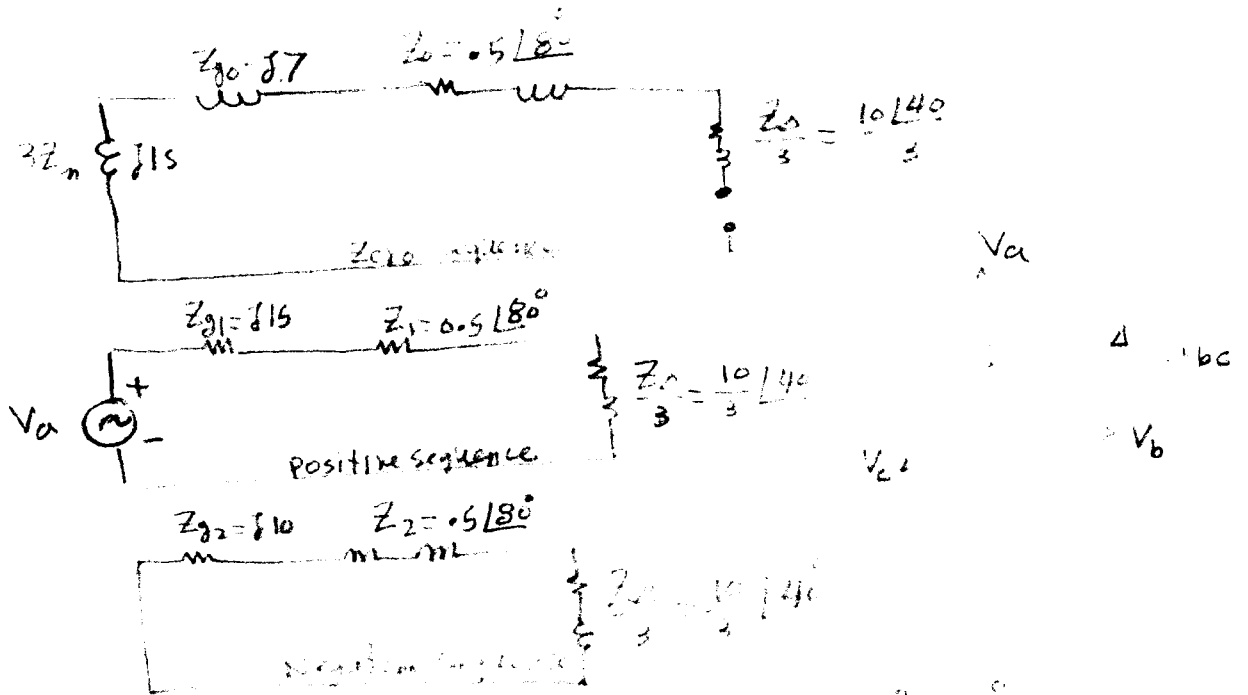 Zg0 = j7 Z0 = .5∠80°
3Zn j15
ZΔ/3 = 10∠40/3
Zero
Va
Zg1 = j15 Z1 = 0.5∠80°
ZΔ/3 = 10/3 ∠40
bc
Va + -
Vb
positive sequence
Vc
Zg2 = j10 Z2 = .5∠80°
ZΔ/3 = 10/3 ∠40
Negative sequence